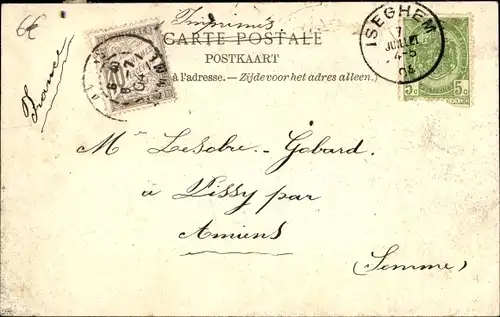 6€
Imprimés
CARTE POSTALE
POSTKAART
à l'adresse. – Zijde voor het adres alleen.)
France
ISEGHEM
7
JUILLET
4-5
04
5c 5c
Mr LeSobre-Gobard.
à Pissy par
Amiens
(Somme)